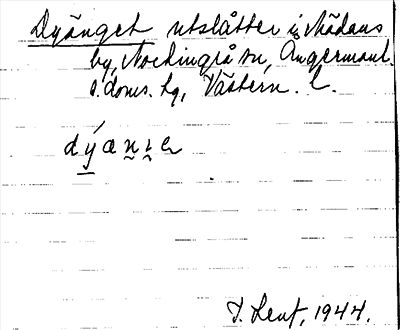 Dyänget utslåtter i Mädans
by, Nordingrå sn, Ångermanl.
s. doms. hg, Västern. l.
dýæni
1944.